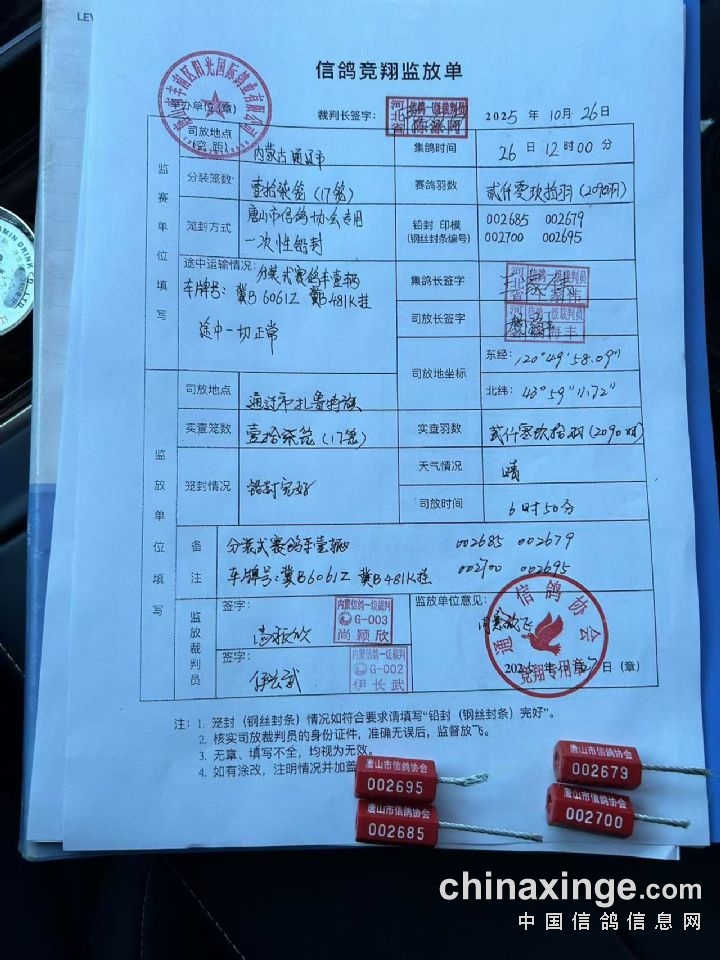 LE
信鸽竞翔监放单
举办单位(章)
裁判长签字：
河北省
信鸽一级裁判员
2025 年 10月 26日
监赛单位填写
司放地点
(空距)
内蒙古通辽市
集鸽时间
26 日 12 时 00 分
分装笼数
壹拾柒笼（17笼）
赛鸽羽数
贰仟零玖拾羽（2090羽）
笼封方式
唐山市信鸽协会专用
一次性铅封
铅封 印模
(钢丝封条编号)
002685 002679
002700 002695
途中运输情况：
分装式赛鸽车壹辆
车牌号：冀B6061Z 冀B481K挂
途中一切正常
集鸽长签字
河北省
信鸽一级裁判员
司放长签字
信鸽一级裁判员
司放地坐标
东经：120°49'58.09"
北纬：43°59"11.72"
监放单位填写
司放地点
通辽市扎鲁特旗
实查笼数
壹拾柒笼（17笼）
实查羽数
贰仟零玖拾羽（2090羽）
笼封情况
铅封完好
天气情况
晴
司放时间
6时50分
备注
分装式赛鸽车壹辆 002685 002679
车牌号：冀B6061Z 冀B481K挂 002700 002695
监放裁判员
签字：
尚颖欣
内蒙信鸽一级裁判
G-003
尚颖欣
签字：
伊长武
内蒙信鸽一级裁判
G-002
伊长武
监放单位意见：
同意放飞
信鸽协会
竞翔专用章
日（章）
注：1. 笼封（钢丝封条）情况如符合要求请填写“铅封（钢丝封条）完好”。
2. 核实司放裁判员的身份证件，准确无误后，监督放飞。
3. 无章、填写不全，均视为无效。
4. 如有涂改，注明情况并加盖
唐山市信鸽协会
002695
唐山市信鸽协会
002679
唐山市信鸽协会
002685
唐山市信鸽协会
002700
chinaxinge.com
中国信鸽信息网